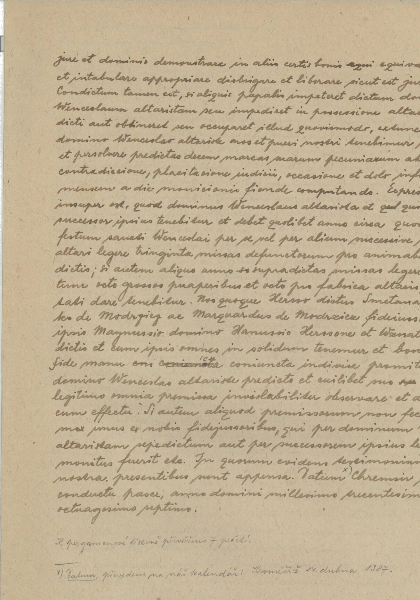 jure et dominio demonstrare in aliis certis bonis equiva
et intabulare appropriare disbrigare et liborare sicut est jur
Condictum tamen est, si aliquis prepalis impeteret dictum do
Wenceslaum altaristam seu impediret in possessione altar
dicti aut obtineret seu occuparet illud quovismodo, extunc
domino Wenceslao altariste nos et pueri nostri tenebimur
et persolvere predictas decem marcas, pecuniarum ab
contradiccione, placitacione judicii, occasione et dolo inf
mensem a die monicionis fiende computando. Expres
insuper est, quod dominus Wenceslaus altarista et quil
successor ipsius tenebitur et debet quolibet anno circa
festum sancti Wenceslai per se vel per alium successive
altari legere triginta missas defunctorum pro animab
dictis; si autem aliquo anno supradictas missas legere
tunc octo grossos pauperibus et octo pro fabrica altaris
dare tenebitur. Nos quoque Herso dictus Smetana
ko de Modrzieg ac Marquardus de Modrziecz fidejusso
ipsis domino Hanussio Herssone et
dictis et cum ipsis omnes in solidum tenemur et
fide manu coniuncta indivise promitti
domino Wenceslao altariste predicto et cuilibet suo
legitimo omnia premissa inviolabiliter observare et
cum effectu. Si autem aliquod premissorum non fec
mox unus ex nobis fidejussoribus, qui per dominum
altaristam sepedictum aut per successorem ipsius le
monitus fuerit etc. In quorum evidens testimonium
nostra presentibus sunt appensa. Datum¹⁾ Chremsir
conductu pasce, anno domini millesimo trecentesimo
octuagesimo septimo.
Z pergamenu
¹⁾ Datum, na náš kalendář: Kroměříž 14. dubna 1387.